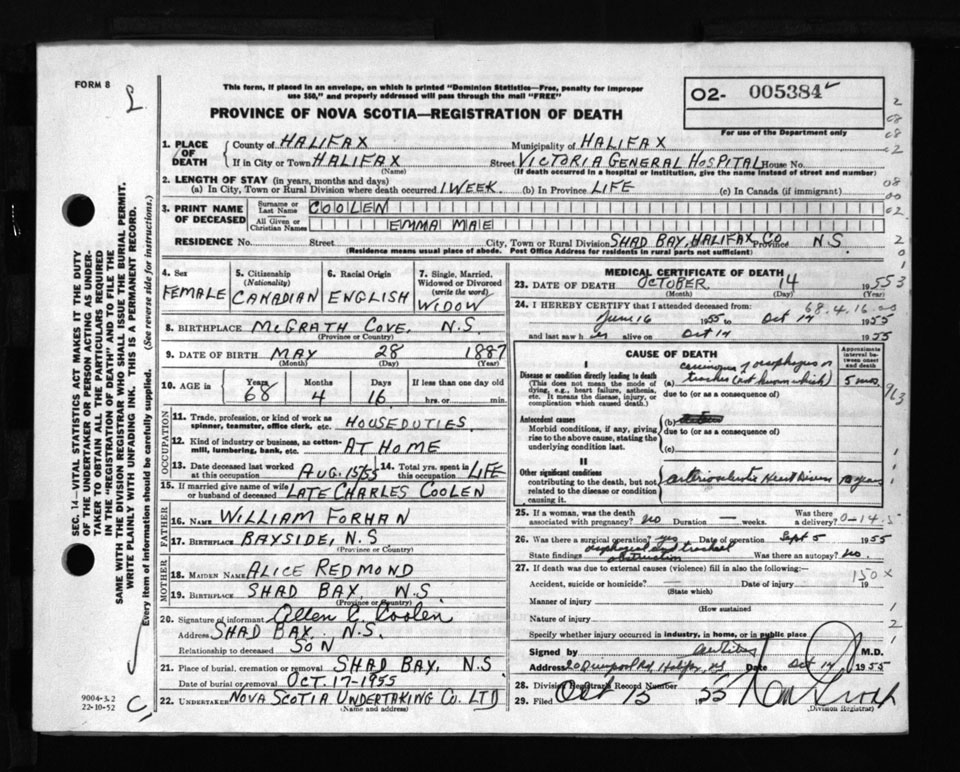 FORM 8
This form, if placed in an envelope, on which is printed "Dominion Statistics—Free, penalty for improper
use $50," and properly addressed will pass through the mail "FREE"
O2- 005384
For use of the Department only
PROVINCE OF NOVA SCOTIA—REGISTRATION OF DEATH
1. PLACE OF DEATH
County of HALIFAX Municipality of HALIFAX
If in City or Town HALIFAX Street VICTORIA GENERAL HOSPITAL House No.
(Name) (If death occurred in a hospital or institution, give the name instead of street and number)
2. LENGTH OF STAY (in years, months and days)
(a) In City, Town or Rural Division where death occurred 1 WEEK. (b) In Province LIFE (c) In Canada (if immigrant)
3. PRINT NAME OF DECEASED
Surname or Last Name COOLEN
All Given or Christian Names EMMA MAE
RESIDENCE No. Street City, Town or Rural Division SHAD BAY, HALIFAX CO Province N S
(Residence means usual place of abode. Post Office Address for residents in rural parts not sufficient)
4. Sex FEMALE
5. Citizenship (Nationality) CANADIAN
6. Racial Origin ENGLISH
7. Single, Married, Widowed or Divorced (write the word) WIDOW
8. BIRTHPLACE McGRATH COVE, N.S.
(Province or Country)
9. DATE OF BIRTH MAY 28 1887
(Month) (Day) (Year)
10. AGE in Years 68 Months 4 Days 16 If less than one day old hrs. or min.
OCCUPATION
11. Trade, profession, or kind of work as spinner, teamster, office clerk, etc. HOUSEDUTIES.
12. Kind of industry or business, as cotton-mill, lumbering, bank, etc. AT HOME
13. Date deceased last worked at this occupation AUG. 15/55 14. Total yrs. spent in this occupation LIFE
15. If married give name of wife or husband of deceased LATE CHARLES COOLEN
FATHER
16. NAME WILLIAM FORHAN
17. BIRTHPLACE BAYSIDE, N.S
(Province or Country)
MOTHER
18. MAIDEN NAME ALICE REDMOND
19. BIRTHPLACE SHAD BAY, N.S.
(Province or Country)
20. Signature of informant Allen C. Coolen
Address SHAD BAY. N.S.
Relationship to deceased SON
21. Place of burial, cremation or removal SHAD BAY, N.S
Date of burial or removal OCT. 17-1955
22. UNDERTAKER NOVA SCOTIA UNDERTAKING CO. LTD
(Name and address)
MEDICAL CERTIFICATE OF DEATH
23. DATE OF DEATH OCTOBER 14 1955
(Month) (Day) (Year)
24. I HEREBY CERTIFY that I attended deceased from:
68.4.16
June 16 1955 to Oct 14 1955
and last saw h er alive on Oct 14 1955
CAUSE OF DEATH
Approximate interval between onset and death
I
Disease or condition directly leading to death
(This does not mean the mode of dying, e.g., heart failure, asthenia, etc. It means the disease, injury, or complication which caused death.)
(a) carcinoma of esophagus or
trachea (not known which) 5 mos.
due to (or as a consequence of)
Antecedent causes
Morbid conditions, if any, giving rise to the above cause, stating the underlying condition last.
(b)
due to (or as a consequence of)
(c)
II
Other significant conditions
contributing to the death, but not related to the disease or condition causing it.
arteriosclerotic Heart Disease years
25. If a woman, was the death associated with pregnancy? no Duration — weeks. Was there a delivery?
26. Was there a surgical operation? yes Date of operation Sept 5 1955
State findings esophageal and tracheal obstruction Was there an autopsy? no.
27. If death was due to external causes (violence) fill in also the following:—
150X
Accident, suicide or homicide? — Date of injury 19
(State which)
Manner of injury
(How sustained)
Nature of injury
Specify whether injury occurred in industry, in home, or in public place
Signed by M.D.
Address Halifax, NS Date Oct 14 1955
28. Division Registrar's Record Number
29. Filed Oct 15 1955
(Division Registrar)
SEC. 14—VITAL STATISTICS ACT MAKES IT THE DUTY
OF THE UNDERTAKER OR PERSON ACTING AS UNDER-
TAKER TO OBTAIN ALL THE PARTICULARS REQUIRED
IN THE "REGISTRATION OF DEATH" AND TO FILE THE
SAME WITH THE DIVISION REGISTRAR WHO SHALL ISSUE THE BURIAL PERMIT.
WRITE PLAINLY WITH UNFADING INK. THIS IS A PERMANENT RECORD.
Every item of information should be carefully supplied. (See reverse side for instructions.)
9004-5.2
22-10-52